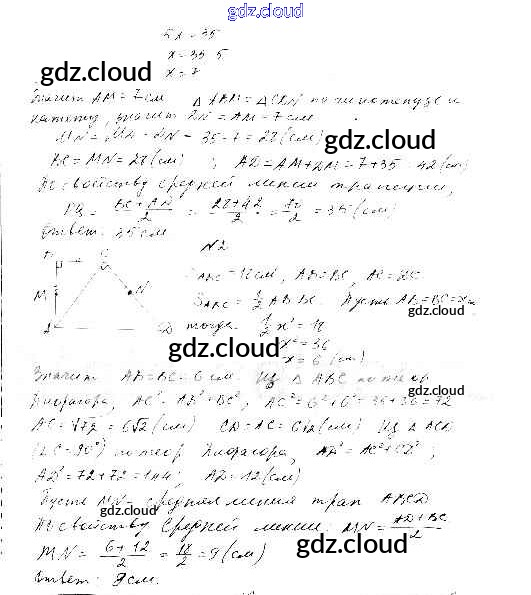 gdz.cloud
5x = 35
x = 35 5
x = 7
gdz.cloud
Значит AM = 7 см △ABM = △CDN по гипотенузе и
катету, значит DN = AM = 7 см
MN = MD - DN = 35 - 7 = 28 (см)
gdz.cloud
BC = MN = 28 (см) ; AD = AM + DM = 7 + 35 = 42 (см)
По свойству средней линии трапеции,
PQ = (BC + AD)/2 = (28+42)/2 = 70/2 = 35 (см)
gdz.cloud
Ответ: 35 см
N2
B C
S ABC = 18 см, AB = BC,
M N
S ABC = 1/2 AB BC. Пусть AB = BC = x
A D
тогда 1/2 x² = 18
gdz.cloud
gdz.cloud
x² = 36
x = 6 (см)
Значит AB = BC = 6 см Из △ABC по теор
Пифагора, AC² = AB² + BC², AC² = 6² + 6² = 36 + 36 = 72
gdz.cloud
AC = √72 = 6√2 (см) CD = AC = 6√2 (см) Из △ACD
gdz.cloud
(∠C = 90°) по теор Пифагора, AD² = AC² + CD²,
AD² = 72 + 72 = 144; AD = 12 (см)
Пусть MN - средняя линия трап ABCD
gdz.cloud
По свойству средней линии MN = (AD + BC)/2
MN = (6+12)/2 = 18/2 = 9 (см)
gdz.cloud
Ответ: 9 см.